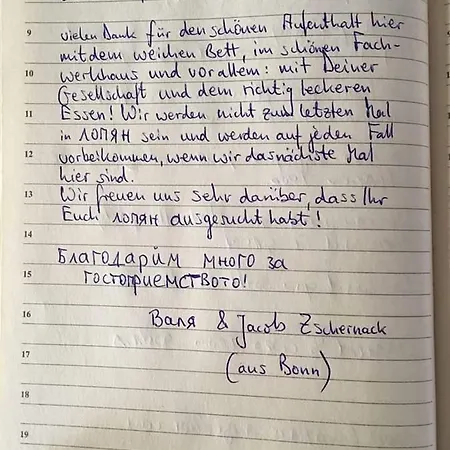 9
vielen Dank für den schönen Aufenthalt hier
mit dem weichen Bett, im schönen Fach-
10
werkhaus und vor allem: mit Deiner
Gesellschaft und dem richtig leckeren
11
Essen! Wir werden nicht zum letzten Mal
in ЛОПЯН sein und werden auf jeden Fall
12
vorbeikommen, wenn wir das nächste Mal
hier sind.
13
Wir freuen uns sehr darüber, dass Ihr
Euch ЛОПЯН ausgesucht habt!
14
БЛАГОДАРИМ МНОГО ЗА
15
ГОСТОПРИЕМСТВОТО!
16
Валя & Jacob Zschernack
17
(aus Bonn)
18
19